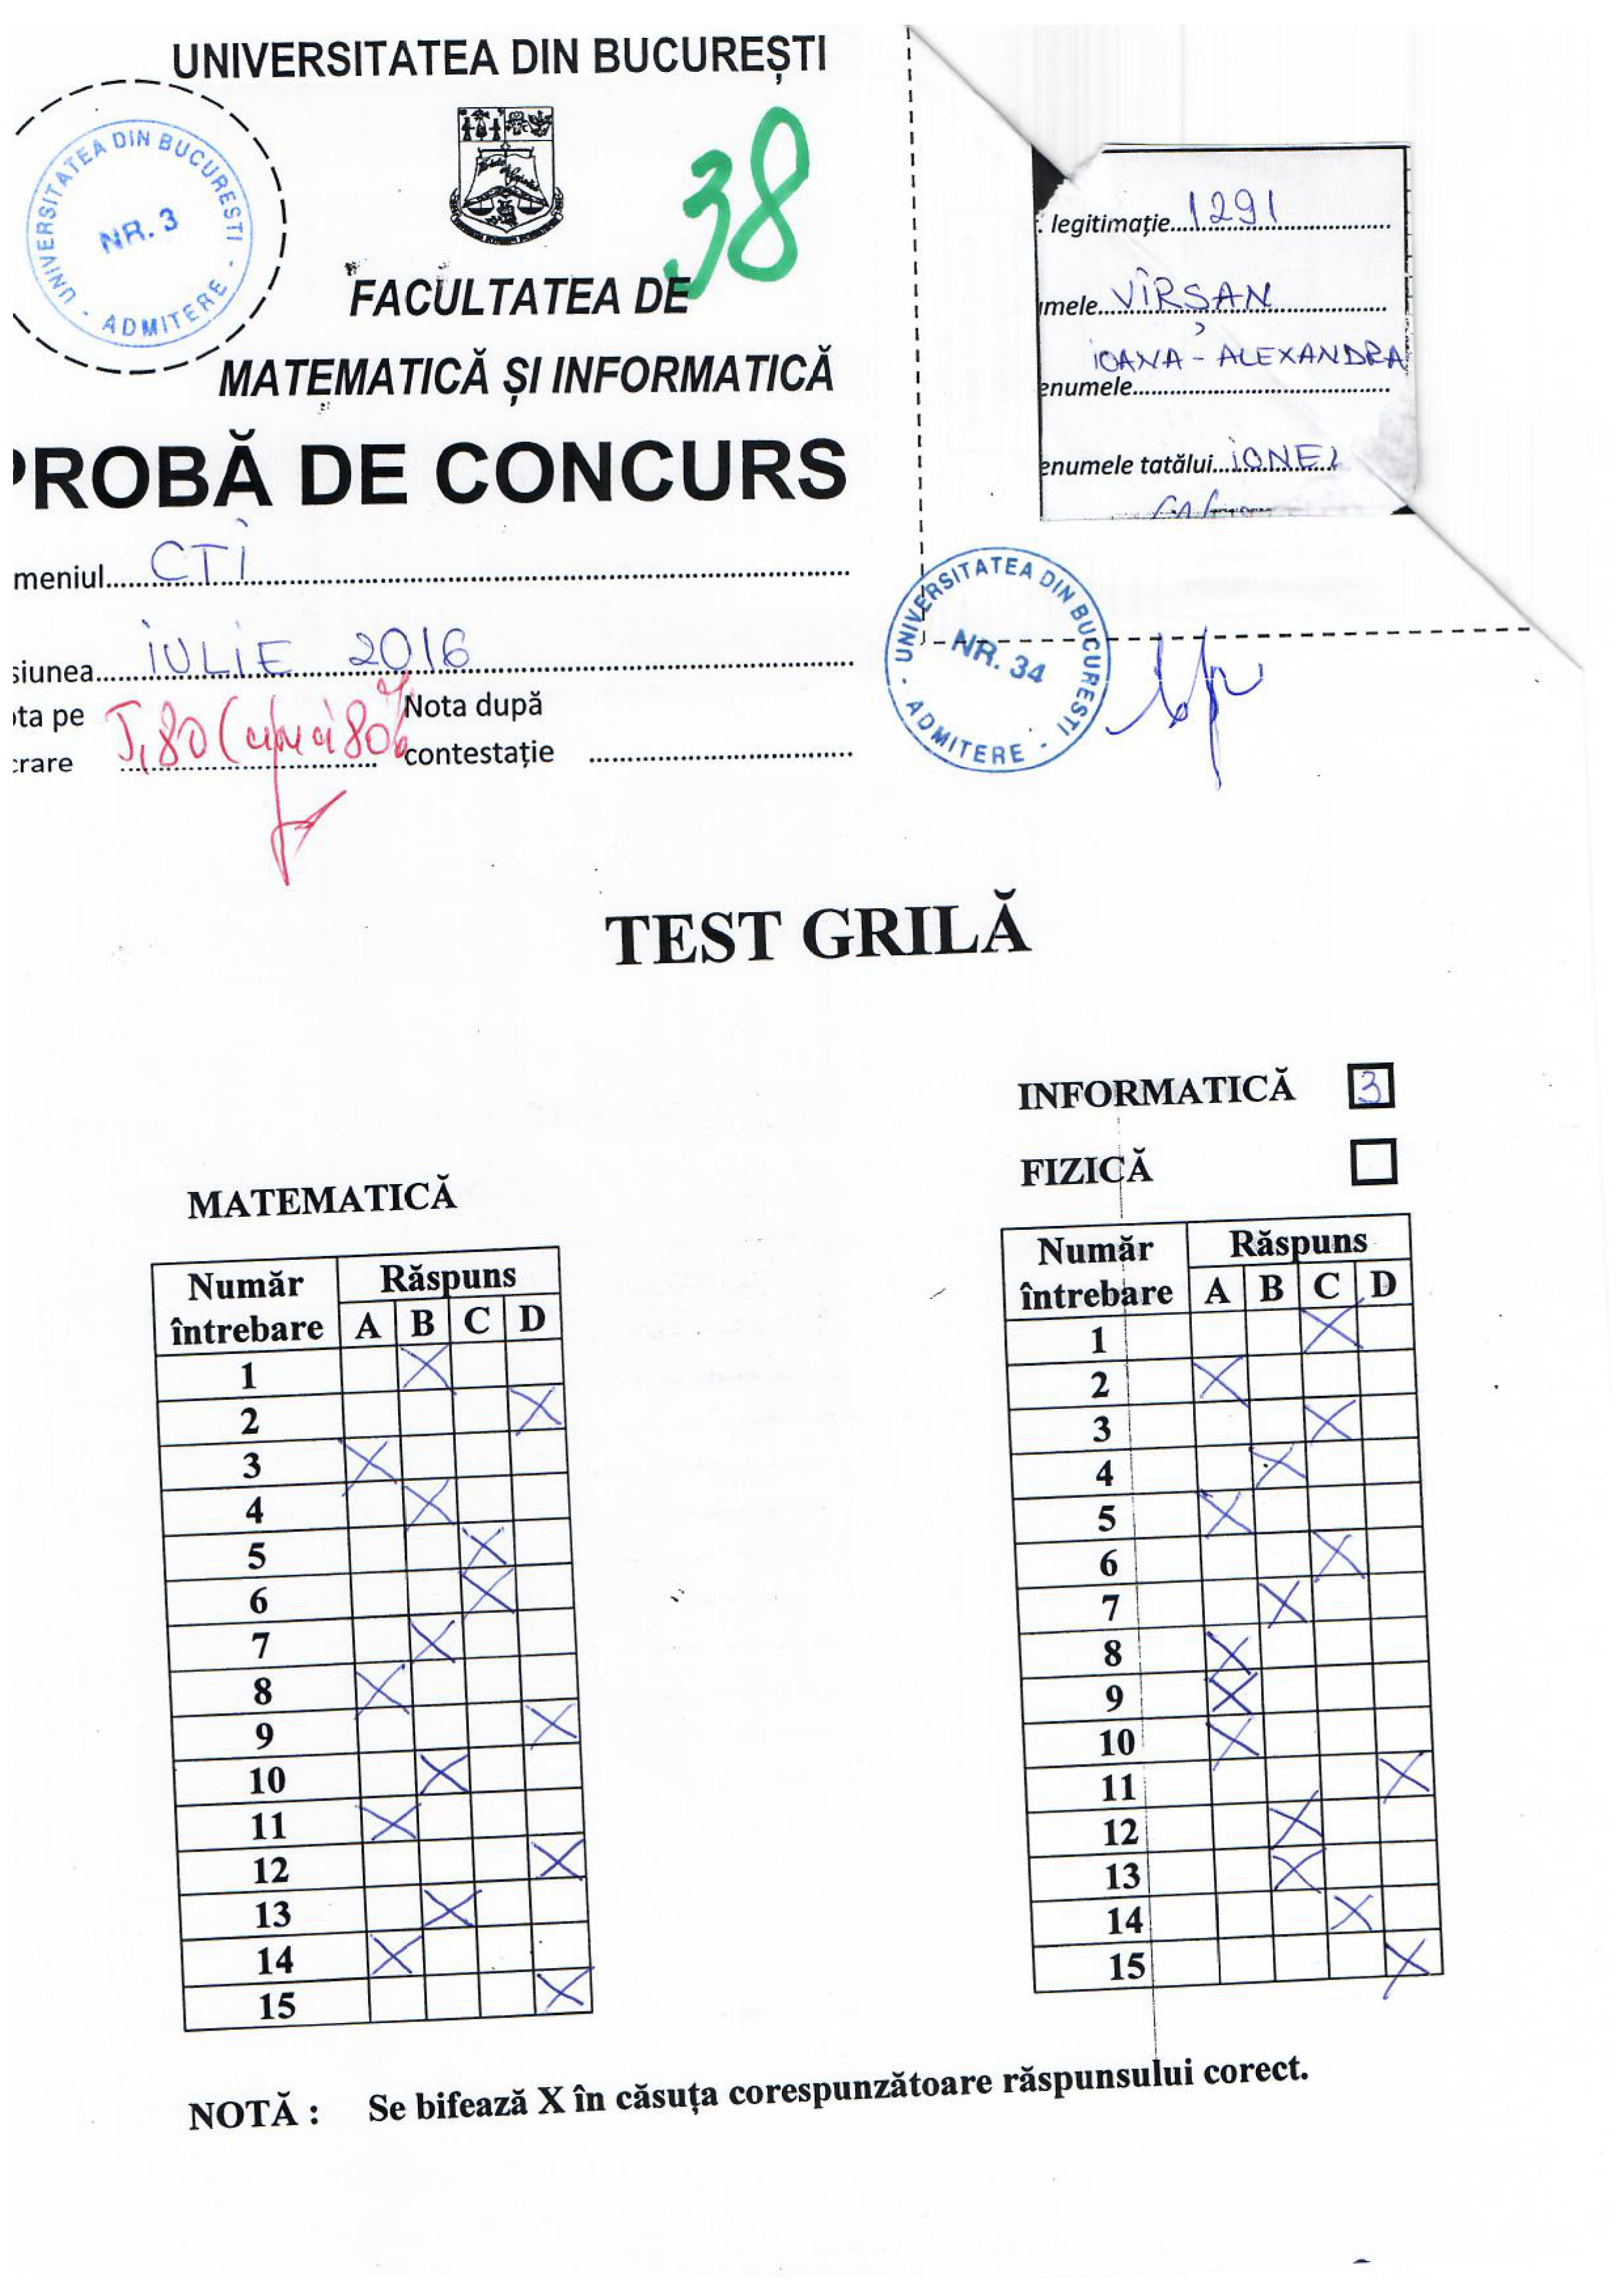 UNIVERSITATEA DIN BUCUREȘTI
UNIVERSITATEA DIN BUCURESTI - ADMITERE -
NR. 3
38
FACULTATEA DE
MATEMATICĂ ȘI INFORMATICĂ
PROBĂ DE CONCURS
meniul CTI
siunea IULIE 2016
ota pe
crare
Nota după
contestație
. legitimație 1291
umele VÎRȘAN
IOANA - ALEXANDRA
enumele
enumele tatălui IONEL
UNIVERSITATEA DIN BUCURESTI - ADMITERE -
NR. 34
TEST GRILĂ
INFORMATICĂ 3
FIZICĂ
MATEMATICĂ
Număr întrebare Răspuns
A B C D
1 X
2 X
3 X
4 X
5 X
6 X
7 X
8 X
9 X
10 X
11 X
12 X
13 X
14 X
15 X
Număr întrebare Răspuns
A B C D
1 X
2 X
3 X
4 X
5 X
6 X
7 X
8 X
9 X
10 X
11 X
12 X
13 X
14 X
15 X
NOTĂ : Se bifează X în căsuța corespunzătoare răspunsului corect.